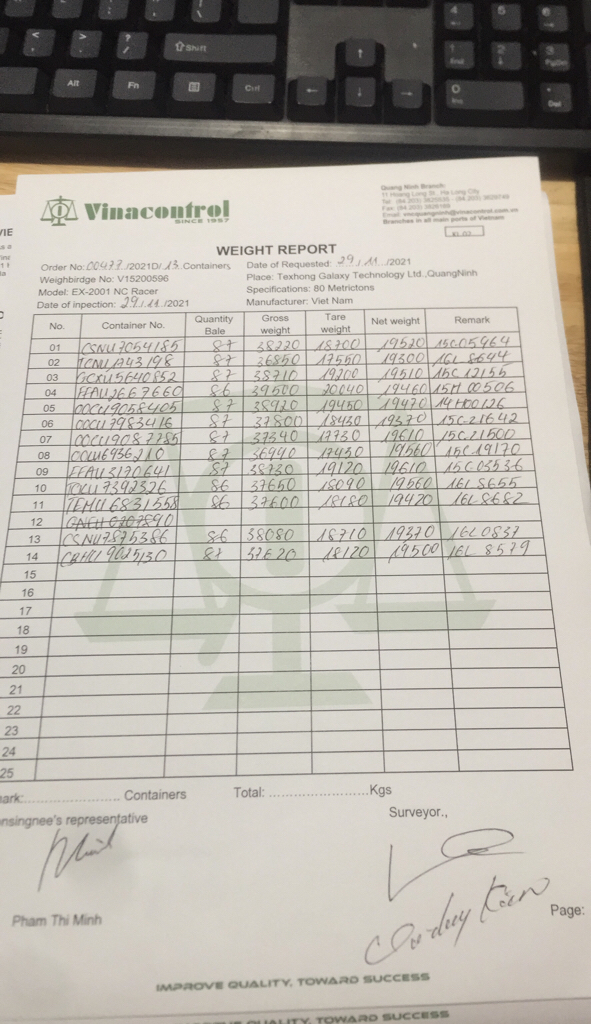 Shift
Alt
Fn
Ctrl
Vinacontrol
SINCE 1957
Quang Ninh Branch:
11 Hoang Long St., Ha Long City
Branches in all main ports of Vietnam
WEIGHT REPORT
Order No: 00477 /2021D/ 13 Containers
Date of Requested: 29 / 11 /2021
Weighbirdge No: V15200596
Place: Texhong Galaxy Technology Ltd.,QuangNinh
Model: EX-2001 NC Racer
Specifications: 80 Metrictons
Date of inpection: 29/11/2021
Manufacturer: Viet Nam
No. Container No. Quantity Bale Gross weight Tare weight Net weight Remark
01 CSNU7054185 87 38220 18700 19520 15C05964
02 87 36850 17550 19300 16L 8644
03 87 38710 19200 19510 15C 12155
04 86 39500 20040 19460 15H 00506
05 OOCU9058405 87 38920 19450 19470 14H00126
06 OOCU7983416 87 37800 18430 19370 15C-21642
07 OOCU9087785 87 37340 17730 19610 15C-21500
08 87 19560 15C 19170
09 FFAU3170641 87 38730 19120 19610 15C 03536
10 TCKU7392326 86 37650 18090 19560 16L 8655
11 TEMU6831558 86 37600 18180 19420 16L8682
12
13 CSNU7875386 86 38080 18710 19370 16L0837
14 87 37620 18120 19500 16L 8579
15
16
17
18
19
20
21
22
23
24
25
ark: Containers Total: Kgs
nsingnee's representative
Surveyor.,
Pham Thi Minh
Page:
IMPROVE QUALITY, TOWARD SUCCESS
QUALITY, TOWARD SUCCESS